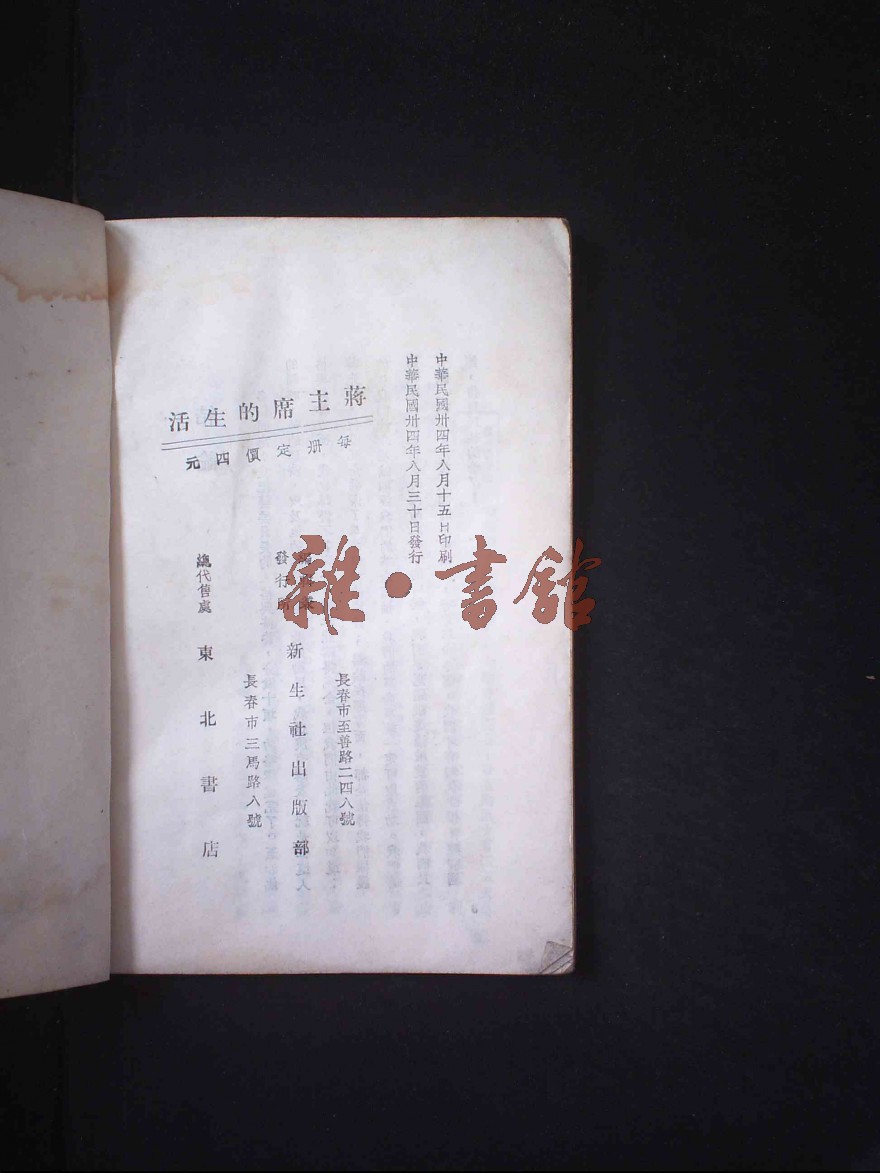 中華民國卅四年八月十五日印刷
中華民國卅四年八月三十日發行
蔣主席的生活
每册定價四元
長春市至善路二四八號
發行所
新生社出版部
長春市三馬路八號
總代售處 東北書店
雜·書館